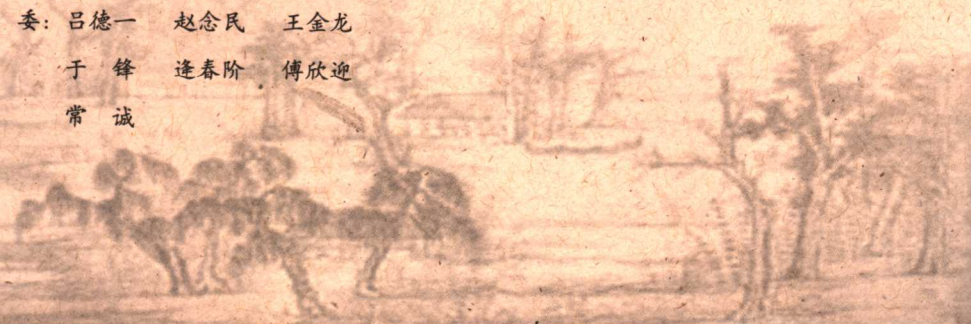 委：吕德一 赵念民 王金龙
于 锋 逄春阶 傅欣迎
常 诚